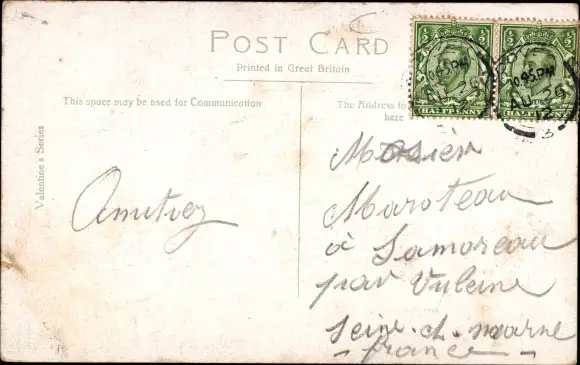 POST CARD
Printed in Great Britain
This space may be used for Communication
The Address to
here
Valentine's Series
HALFPENNY
HALFPENNY
10.45 PM
10.45 PM
AU 26
12
3
Amitiez
Mosièr
Maroteau
à Samoreau
par Vulaine
Seine. et. marne
- france -